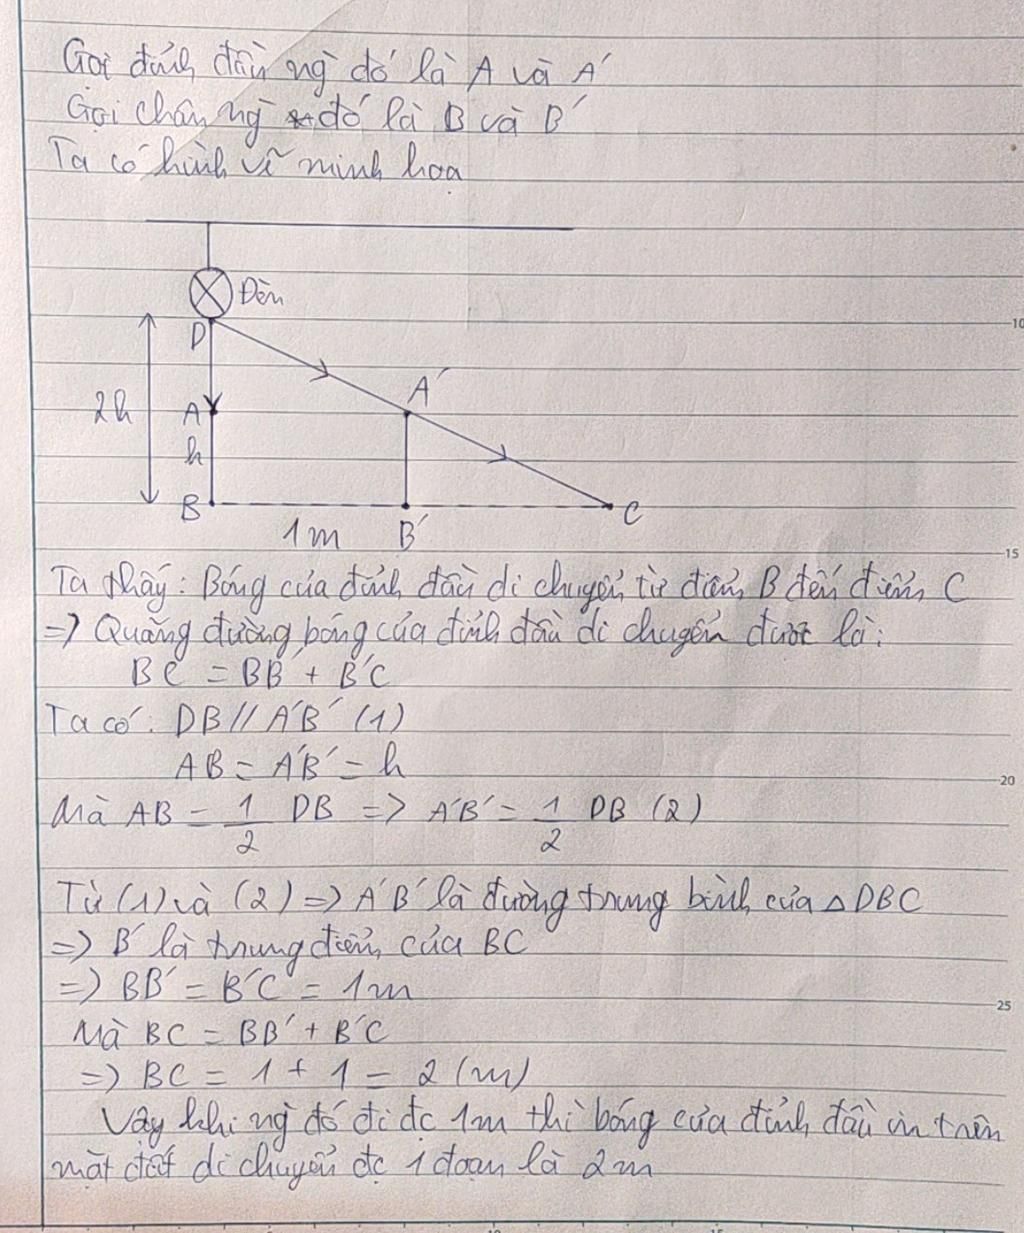 Gọi đỉnh đầu ng` đó là A và A'
Gọi chân ng` đó là B và B'
Ta có hình vẽ minh hoạ
Đèn
D
10
A'
2h
A
h
B
1m
B'
C
15
Ta thấy: Bóng của đỉnh đầu di chuyển từ điểm B đến điểm C
=> Quãng đường bóng của đỉnh đầu di chuyển được là:
BC = BB' + B'C
Ta có: DB // A'B' (1)
AB = A'B' = h
20
Mà AB = 1/2 DB => A'B' = 1/2 DB (2)
Từ (1) và (2) => A'B' là đường trung bình của △DBC
=> B' là trung điểm của BC
=> BB' = B'C = 1m
25
Mà BC = BB' + B'C
=> BC = 1 + 1 = 2 (m)
Vậy khi ng` đó đi đc 1m thì bóng của đỉnh đầu in trên
mặt đất di chuyển đc 1 đoạn là 2m